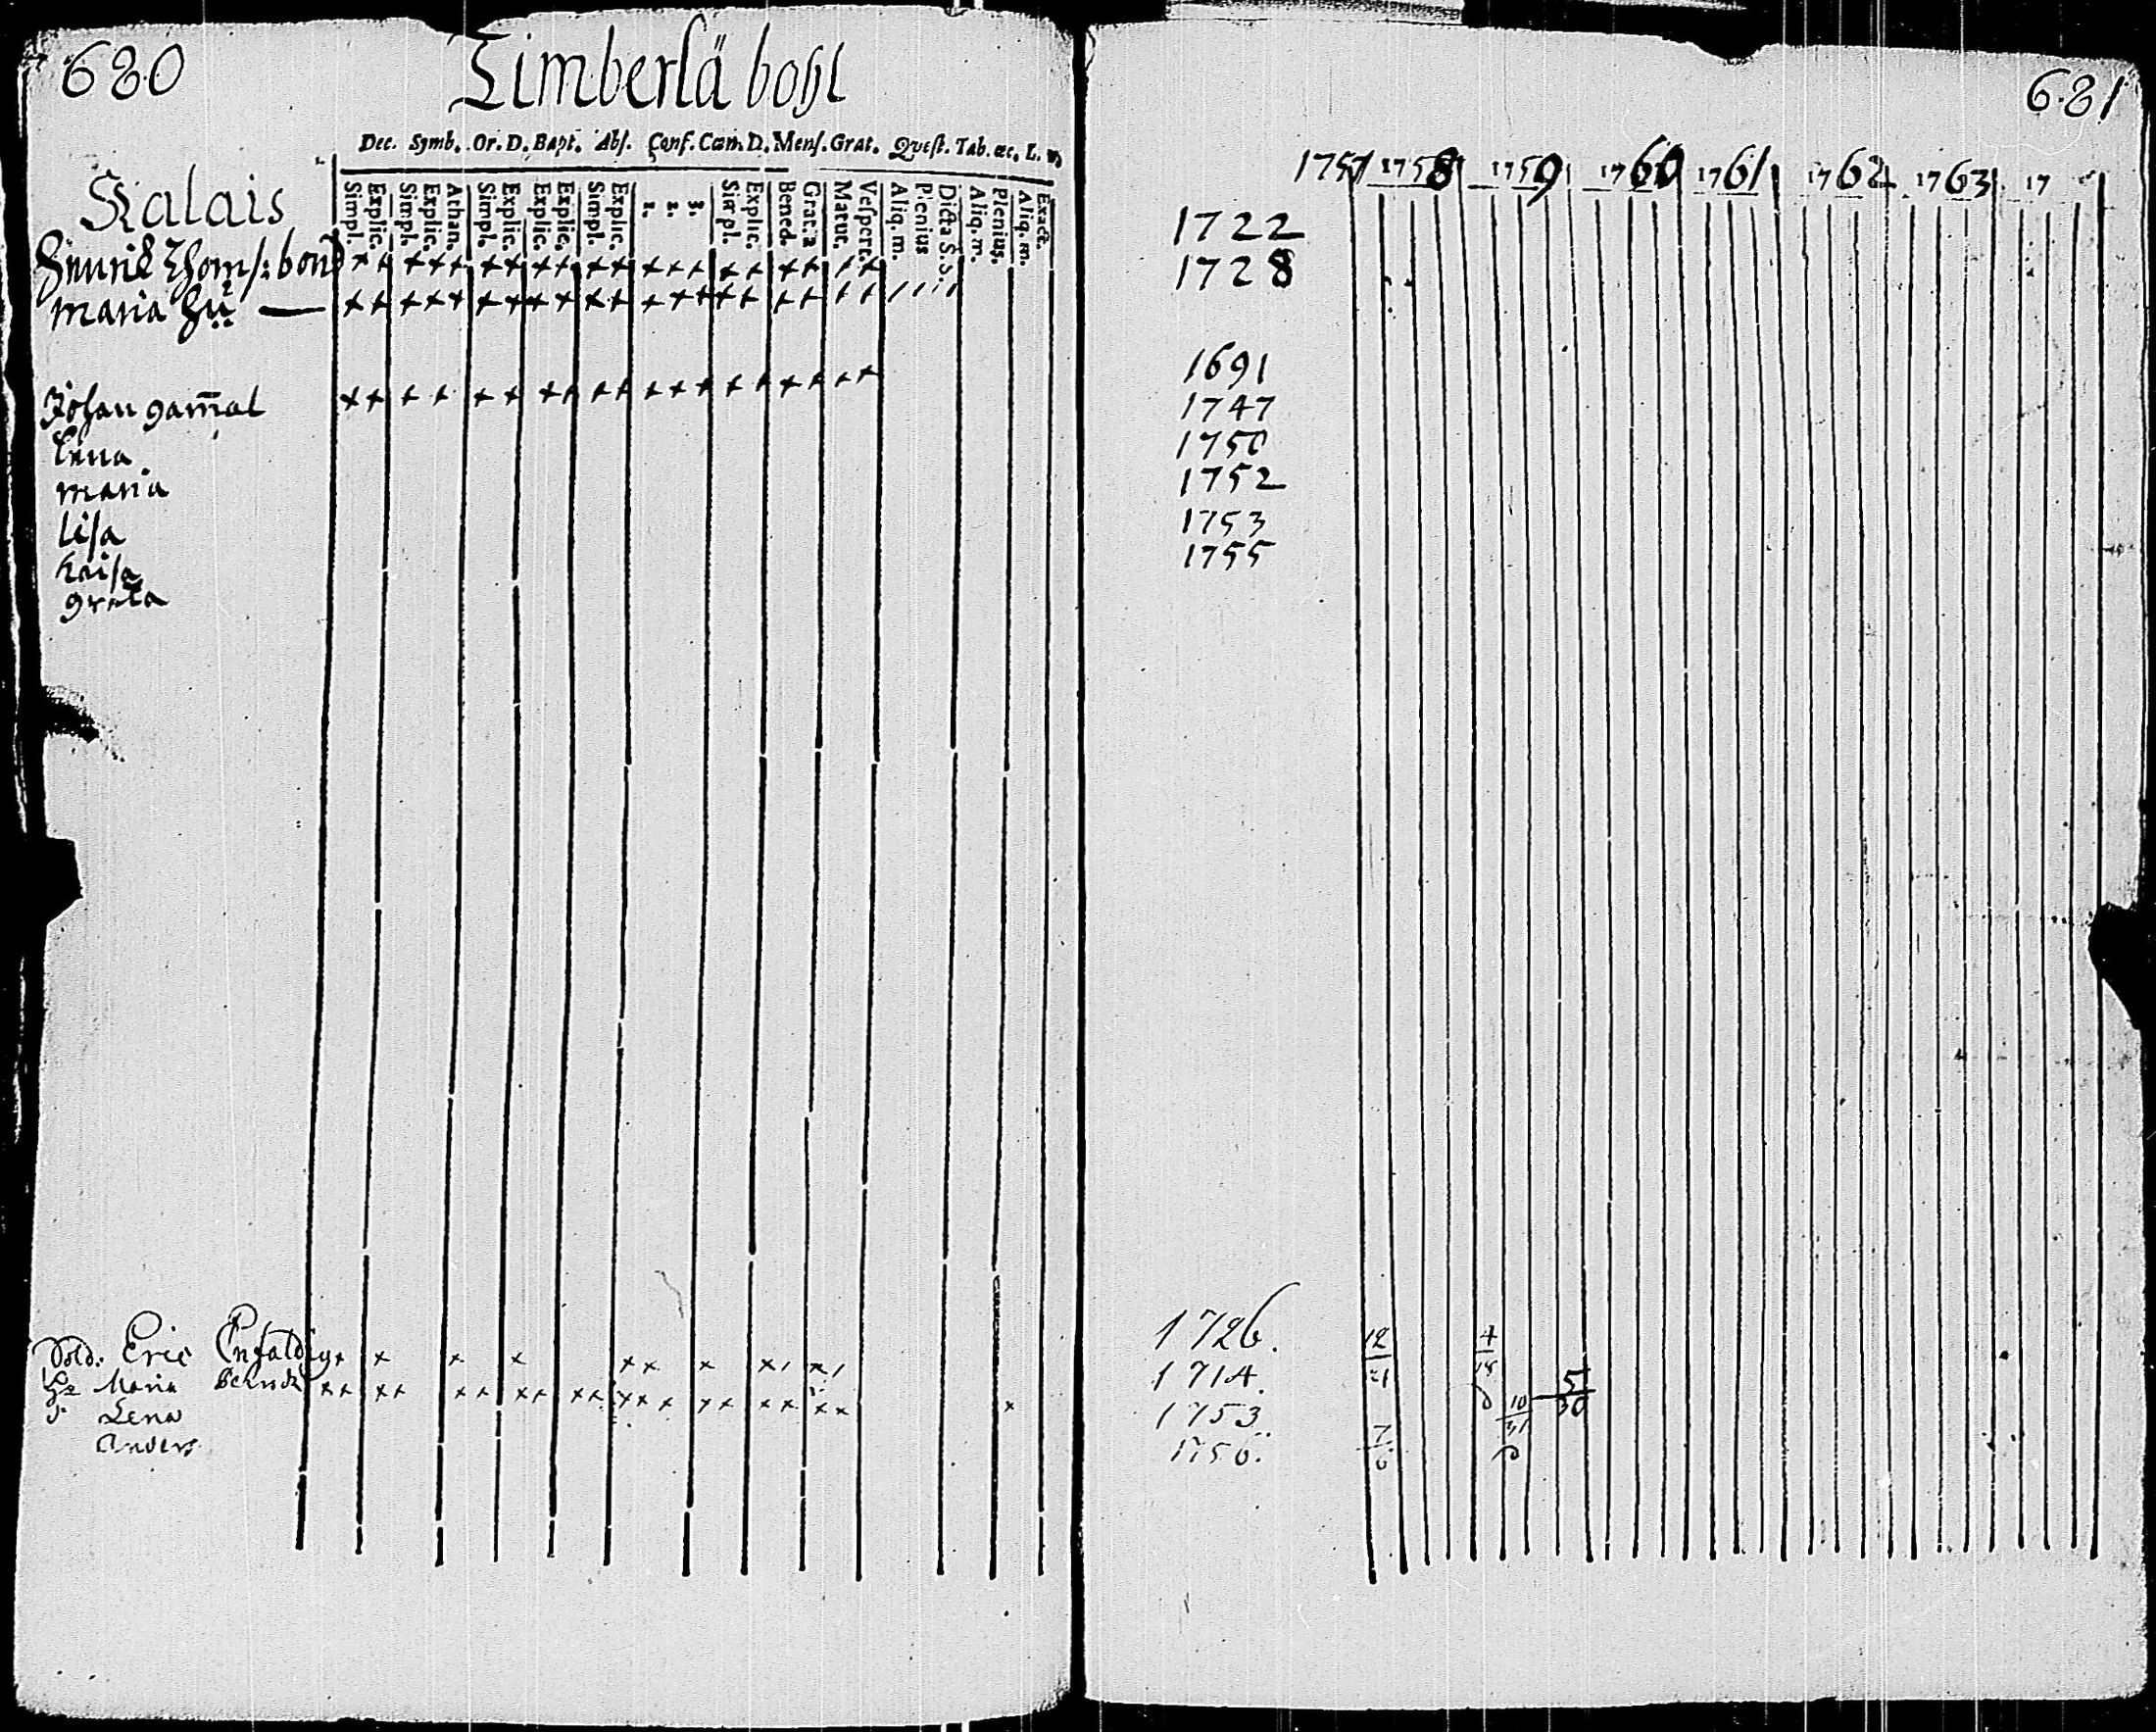 680
Timberlä bohl
Dec. Symb. Or. D. Bapt. Abs. Conf. Cœn. D. Mens. Grat. Quest. Tab. œc. L. m
Simpl. Explic. Simpl. Explic. Athan. Simpl. Explic. Explic. Explic. Simpl. Explic. 1. 2. 3. Simpl. Explic. Bened. Gratia Matut. Vespere. Aliq. m. Plenius Dicta S.S. Aliq. m. Plenius. Aliq. m. Exacte.
Kalais
Hinrik Thoms: bond
Maria Hu
Johan gam̄al
Lena
Maria
Lisa
Kaisa
greta
Sold. Eric Enfaldig
Hu Maria
Lena
Anders
681
1757 1758 1759 1760 1761 1762 1763 17
1722
1728
1691
1747
1750
1752
1753
1755
1726.
1714.
1753
1756.
12
21
4
18
10
31
5
30
7
6